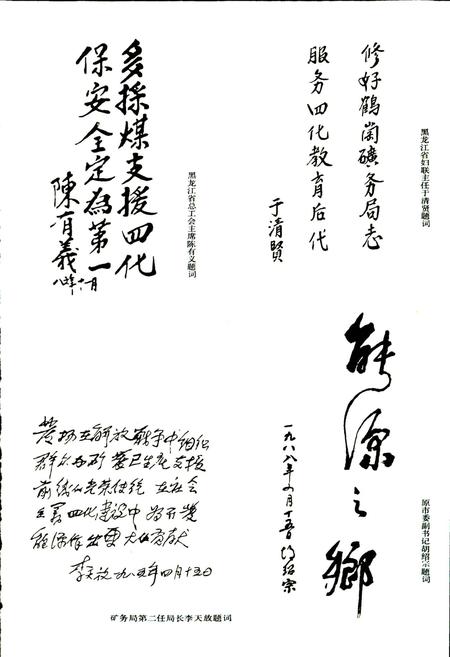 黑龙江省妇联主任于清贤题词
修好鹤岗礦务局志
服务四化教育后代
于清賢
黑龙江省总工会主席陈有义题词
多採煤支援四化
保安全定為第一
陳有義
原市委副书记胡绍宗题词
能源之鄉
一九八八年
月十五日
胡绍宗
發扬在解放戰争中组织
群众为矿
生产支援
前线的光荣传统 在社会
主義四化建设中 为开發
能源作出更大的贡献
李天放 九八五年四月十五日
矿务局第二任局长李天放题词